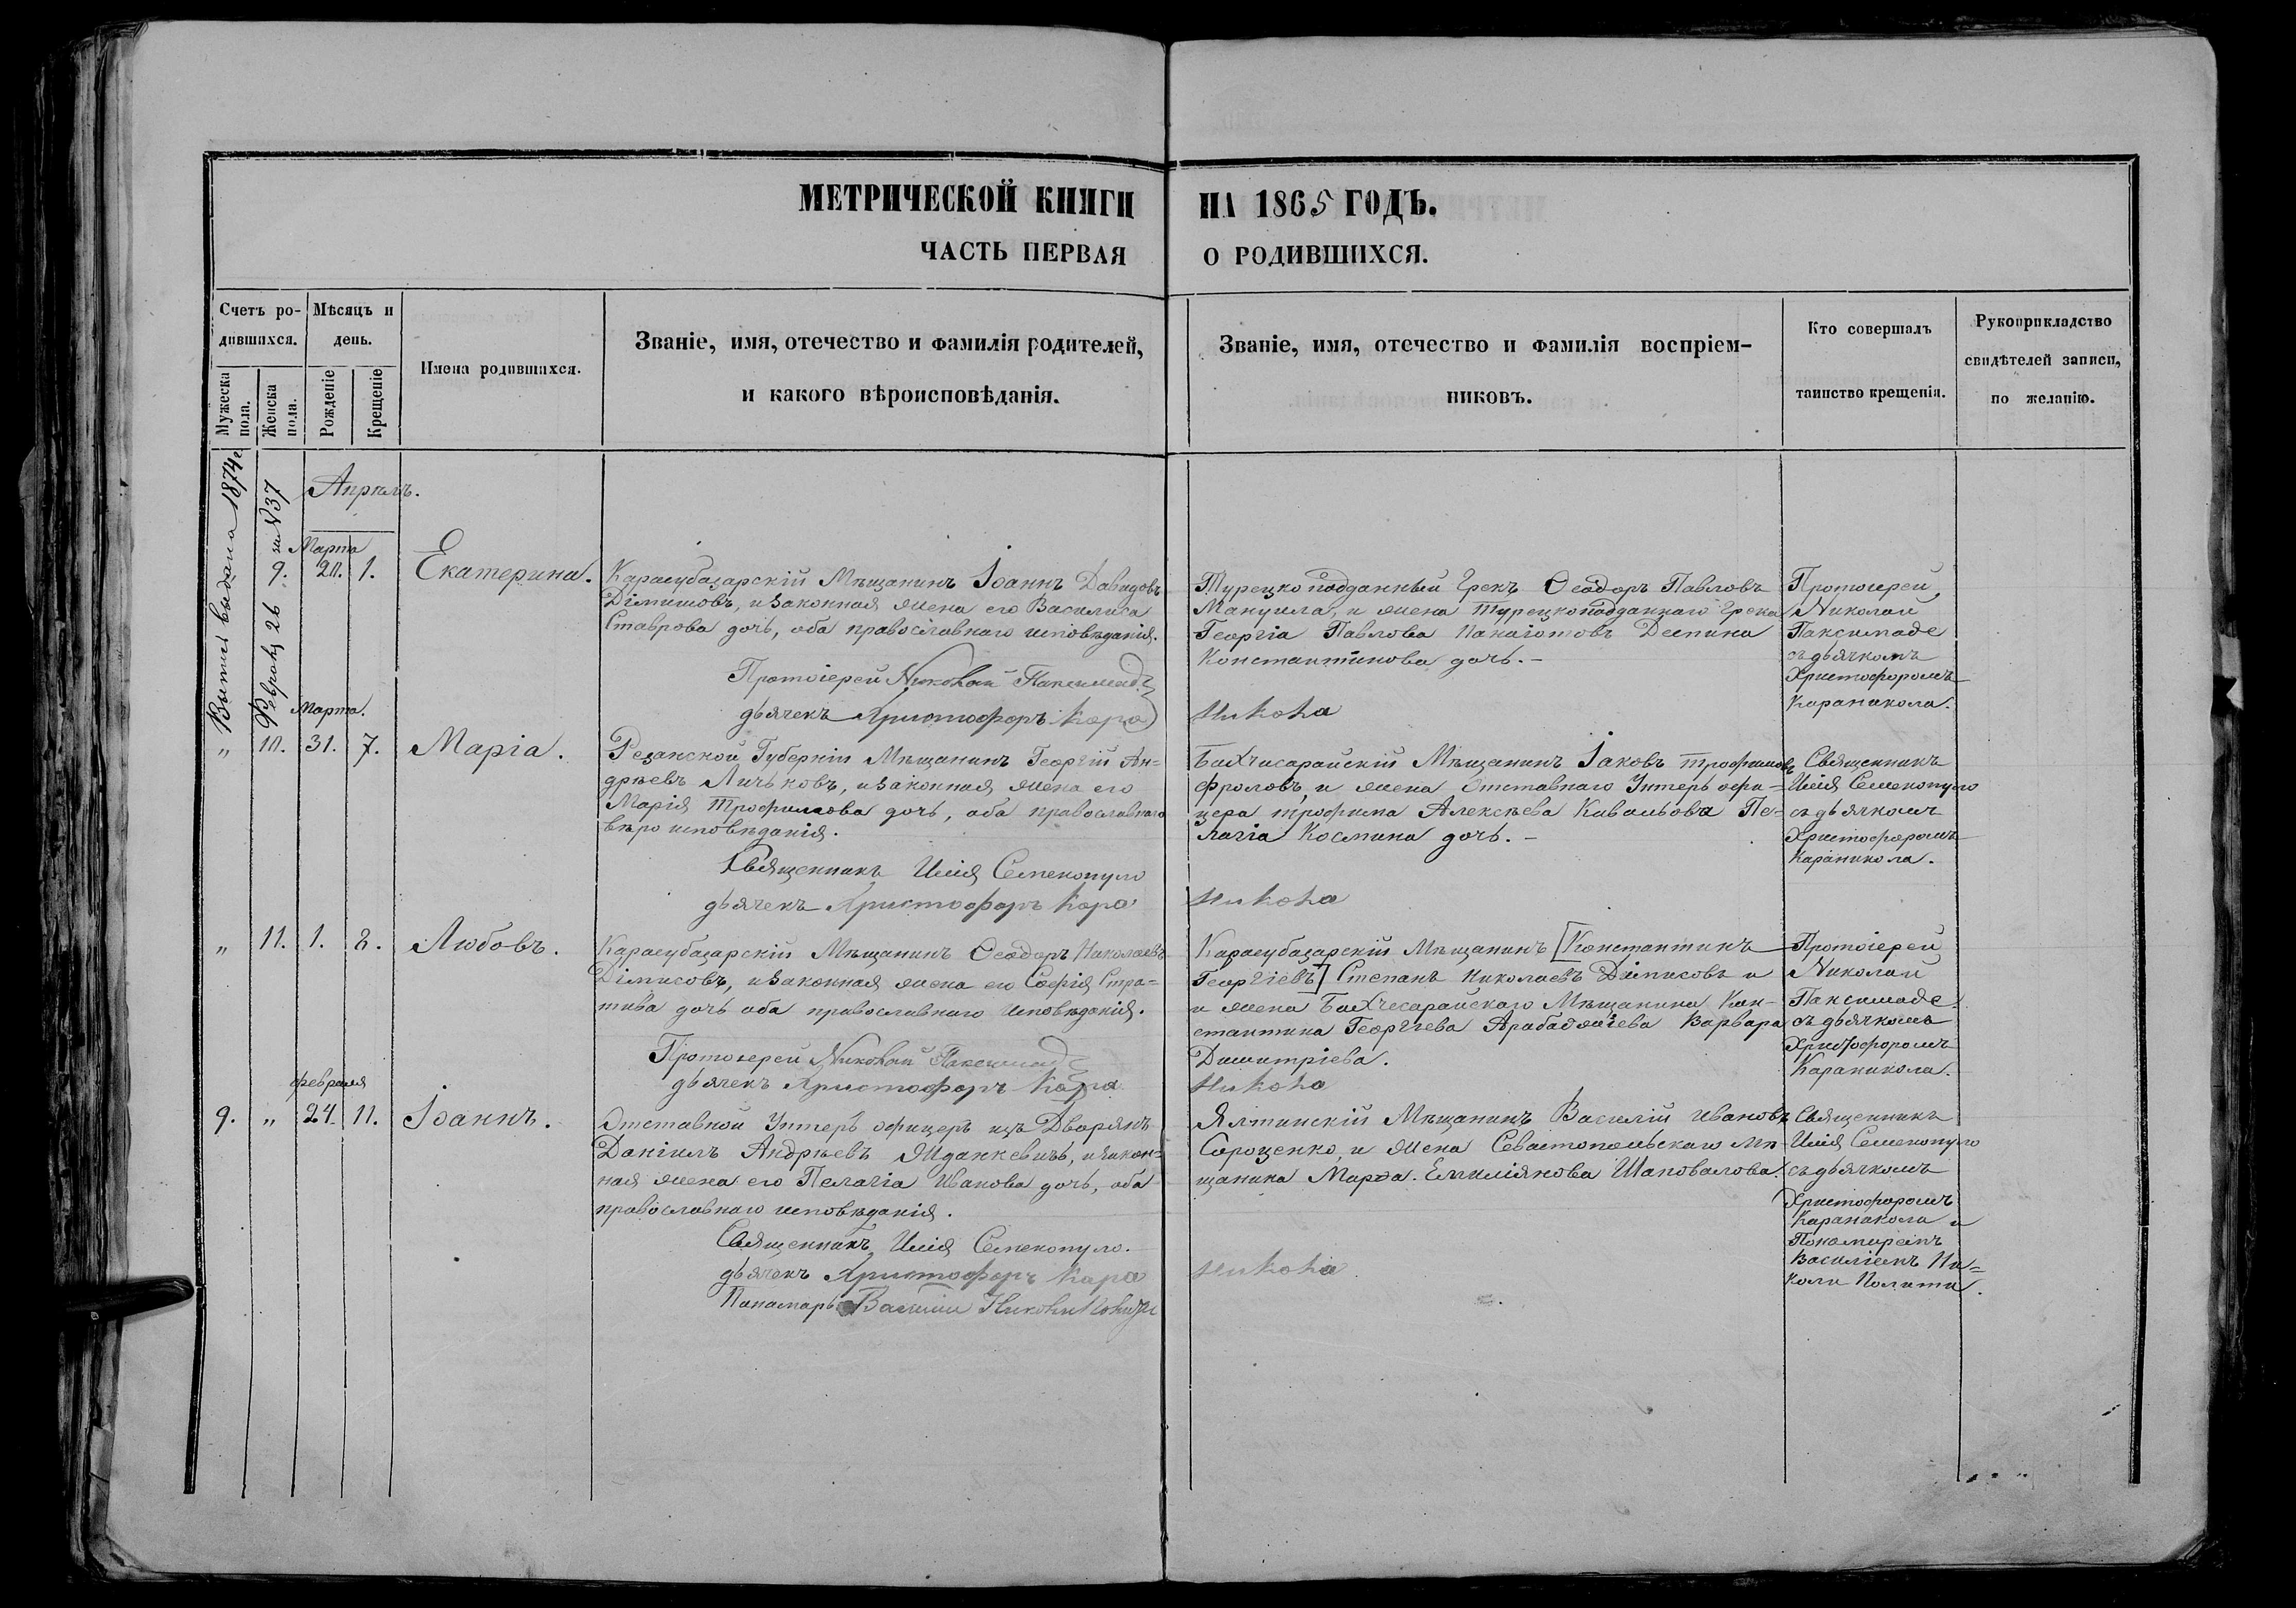 МЕТРИЧЕСКОЙ КНИГИ НА 1865 ГОДЪ.
ЧАСТЬ ПЕРВАЯ О РОДИВШИХСЯ.
Счетъ ро-
дившихся.
Мѣсяцъ и
день.
Мужеска
пола.
Женска
пола.
Рожденіе
Крещеніе
Имена родившихся.
Званіе, имя, отечество и фамилія родителей,
и какого вѣроисповѣданія.
Званіе, имя, отечество и фамилія воспріем-
никовъ.
Кто совершалъ
таинство крещенія.
Рукоприкладство
свидѣтелей записи,
по желанію.
выдана 1874 г
26 за N 37
Апрѣль.
Марта
9. 20. 1. Екатерина.
Карасубазарскій Мѣщанинъ Іоаннъ Давидовъ
и законная жена его Василиса
Ставрова дочь, оба православнаго исповѣданія.
Протоіерей Николай
дьячекъ Христофоръ Кара
Турецко подданный Грекъ Ѳеодоръ Павловъ
Мануила, и жена Турецкоподданнаго Грека
Георгія Павлова Панаіотовъ Деспина
Константинова дочь. –
никола
Протоіерей
Николай
Паксимаде
съ дьячкомъ
Христофоромъ
Караникола.
Марта.
„ 10. 31. 7. Марія.
Резанской Губерніи Мѣщанинъ Георгій Ан=
дрѣевъ Личьковъ, и законная жена его
Марія Трофимова дочь, оба православнаго
вѣроисповѣданія.
Священникъ Илія Семенопуло
дьячекъ Христофоръ Кара
Бахчисарайскій Мѣщанинъ Іаковъ Трофимовъ
Фроловъ, и жена Отставнаго Унтеръ офи=
цера Трофима Алексѣева Ковальова Пе=
лагія Космина дочь. –
никола
Священникъ
Илія Семенопуло
съ дьячкомъ
Христофоромъ
Караникола.
„ 11. 1. 8. Любовь.
Карасубазарскій Мѣщанинъ Ѳеодоръ Николаевъ
Димисовъ, и законная жена его Софія Стра=
тива дочь оба православнаго исповѣданія.
Протоіерей Николай
дьячекъ Христофоръ Кара
Карасубазарскій Мѣщанинъ [Константинъ
Георгіевъ] Степанъ Николаевъ Димисовъ и
и жена Бахчесарайскаго Мѣщанина Кон-
стантина Георгіева Арабаджіева Варвара
Димитріева.
никола
Протоіерей
Николай
Паксимаде
съ дьячкомъ
Христофоромъ
Караникола.
февраля
9. „ 24. 11. Іоаннъ.
Отставной Унтеръ офицеръ изъ Дворянъ
Даніилъ Андрѣевъ Жданкевичъ, и закон=
ная жена его Пелагія Иванова дочь, оба
православнаго исповѣданія.
Священникъ Илія Семенопуло.
дьячекъ Христофоръ Кара
Понамарь Василій Николи Полити
Ялтинскій Мѣщанинъ Василій Ивановъ
Сороценко, и жена Севастопольскаго Мѣ-
щанина Марѳа Емиліянова Шаповалова.
никола
Священникъ
Илія Семенопуло
съ дьячкомъ
Христофоромъ
Караникола и
Пономаремъ
Василіемъ Ни=
коли Полити.